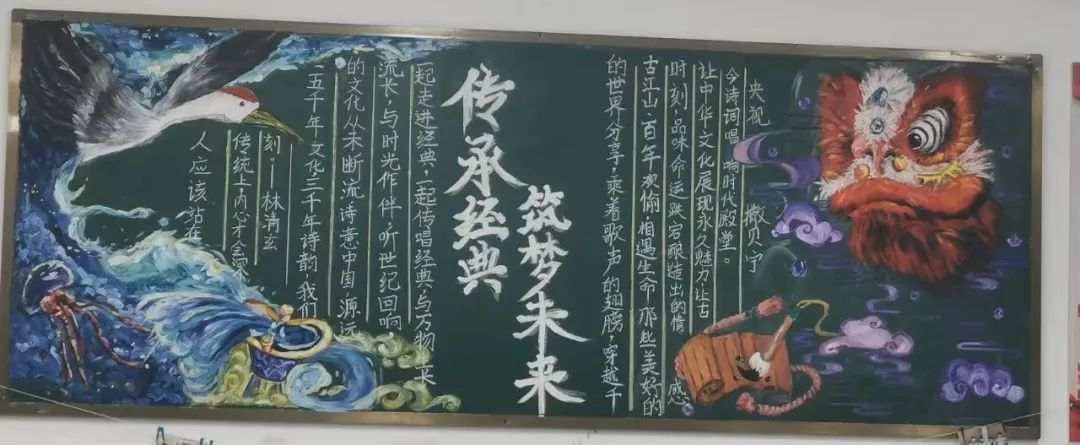 人应该站在
传统上内心才会深
刻——林清玄
五千年文化三千年诗韵我们
的文化从未断流诗意中国源远
流长,与时光作伴听世纪回响
一起走进经典,一起传唱经典,与万物 长
传承经典
筑梦未来
的世界分享,乘着歌声的翅膀,穿越千
古江山·百年 欢偷 相遇生命那些美好的
时刻,品味命运跌宕酿造出的情感
让中华文化展现永久魅力,让古
今诗词唱响时代殿堂。
央视 撒贝宁